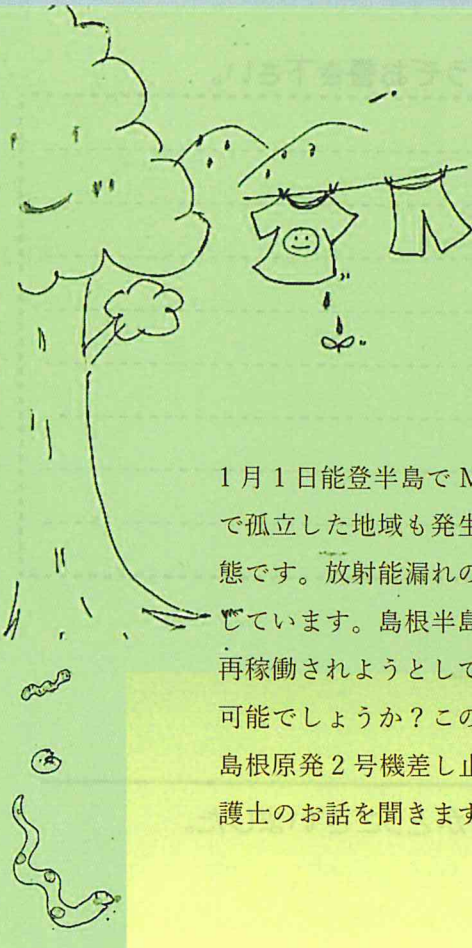 1月1日能登半島でM
で孤立した地域も発生
態です。放射能漏れの
しています。島根半島
再稼働されようとして
可能でしょうか？この
島根原発2号機差し止
護士のお話を聞きます